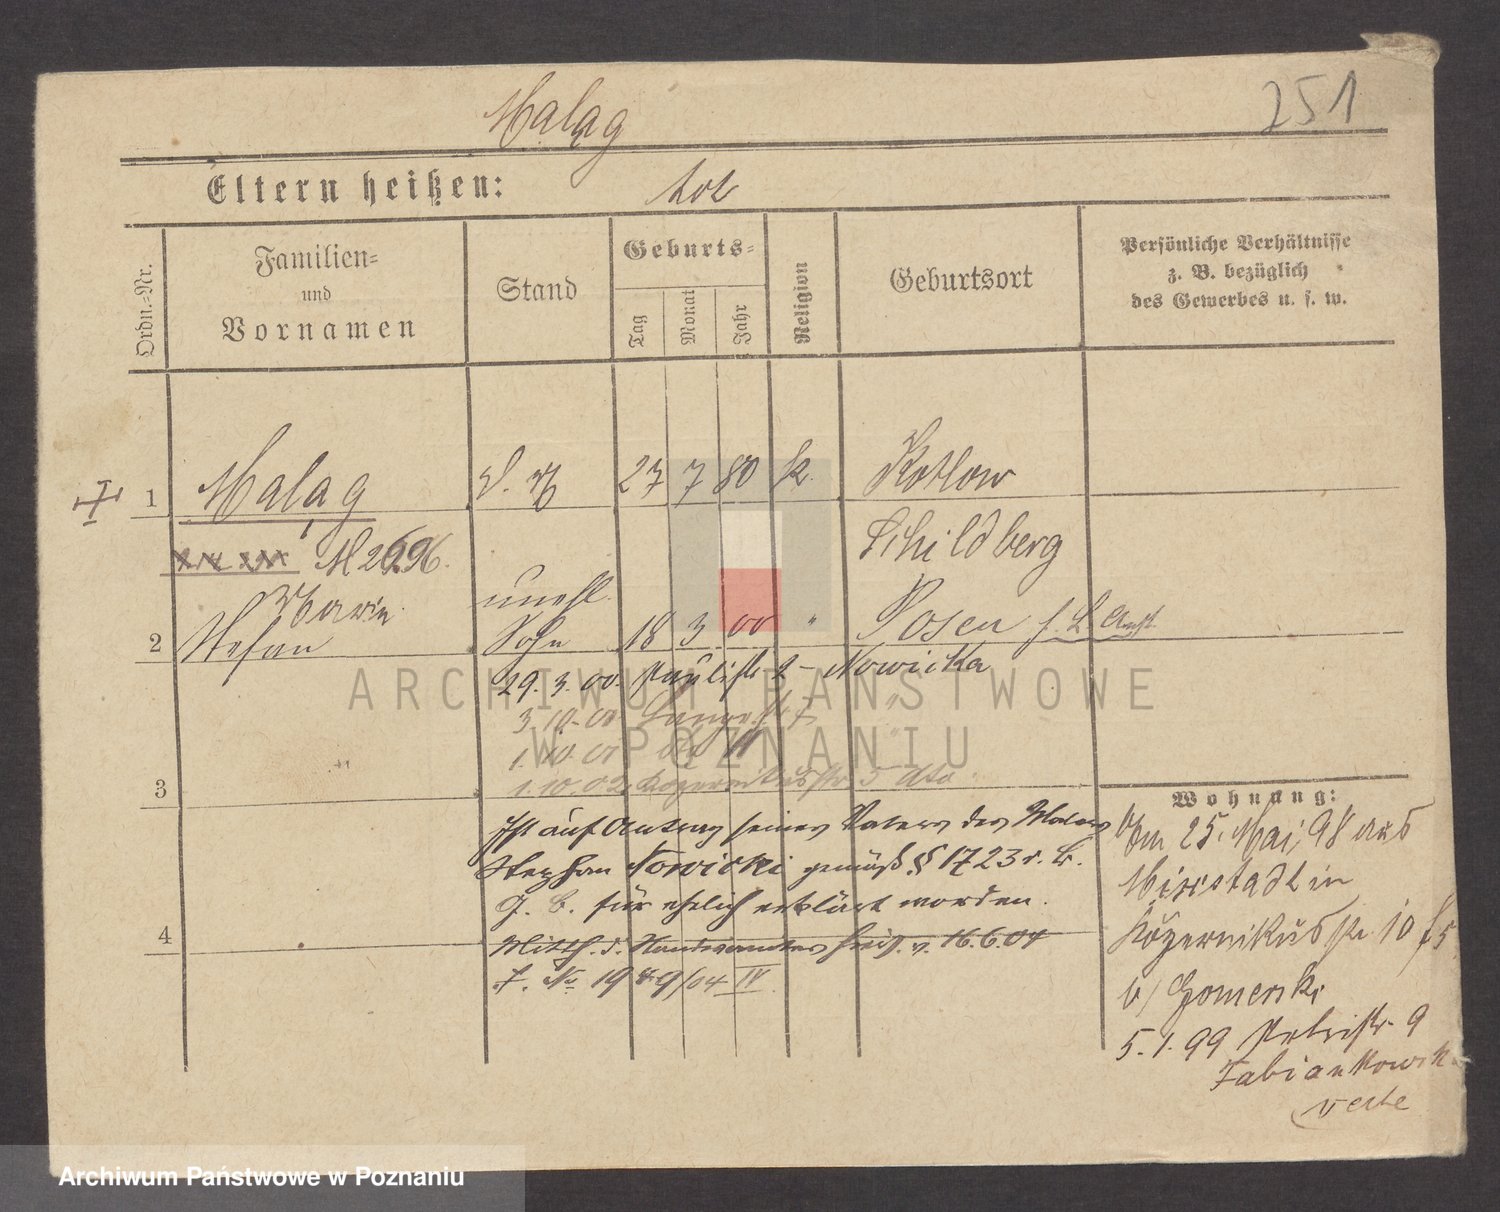 251
Malag
Eltern heißen: tot
Ordn.-Nr.
Familien-
und
Vornamen
Stand
Geburts-
Tag
Monat
Jahr
Religion
Geburtsort
Persönliche Verhältnisse
z. B. bezüglich
des Gewerbes u. s. w.
1 Malag D. M 27 7 80 k. Kotlow
Schildberg
Marie
unehl.
2 Stefan Sohn 18 3 00 " Posen
29. 3. 00. Paulistr 2 - Nowicka
3. 10. 00
1. 10. 01
3
1. 10. 02 5 dto
Ist auf Antrag seines Vaters des Malers
Stephan Nowicki gemäß § 1723 d. B.
G. B. für ehelich erklärt worden.
4
Mitth. d. Standesamtes hies. v. 16.6.04
J. No 1989/04 IV
Wohnung:
Am 25. Mai 98 aus
Mixstadt in
Kopernikusstr. 10
b/ Gomerski
5. 1. 99 Petristr. 9
Fabiankowski
verte
ARCHIWUM PAŃSTWOWE
W POZNANIU
Archiwum Państwowe w Poznaniu